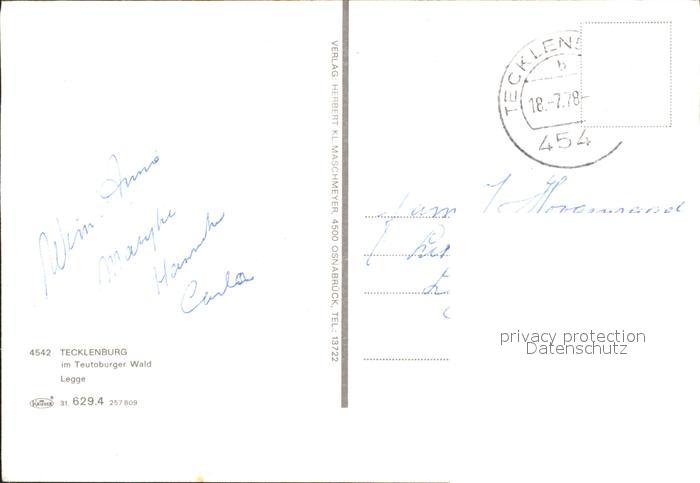 Wim Anno
Marijke
Hanneke
Carla
4542 TECKLENBURG
im Teutoburger Wald
Legge
31. 629.4 257809
VERLAG: HERBERT KL. MASCHMEYER, 4500 OSNABRÜCK, TEL.: 13722
TECKLENB
b
18.-7.78-
454
Fam.
privacy protection
Datenschutz